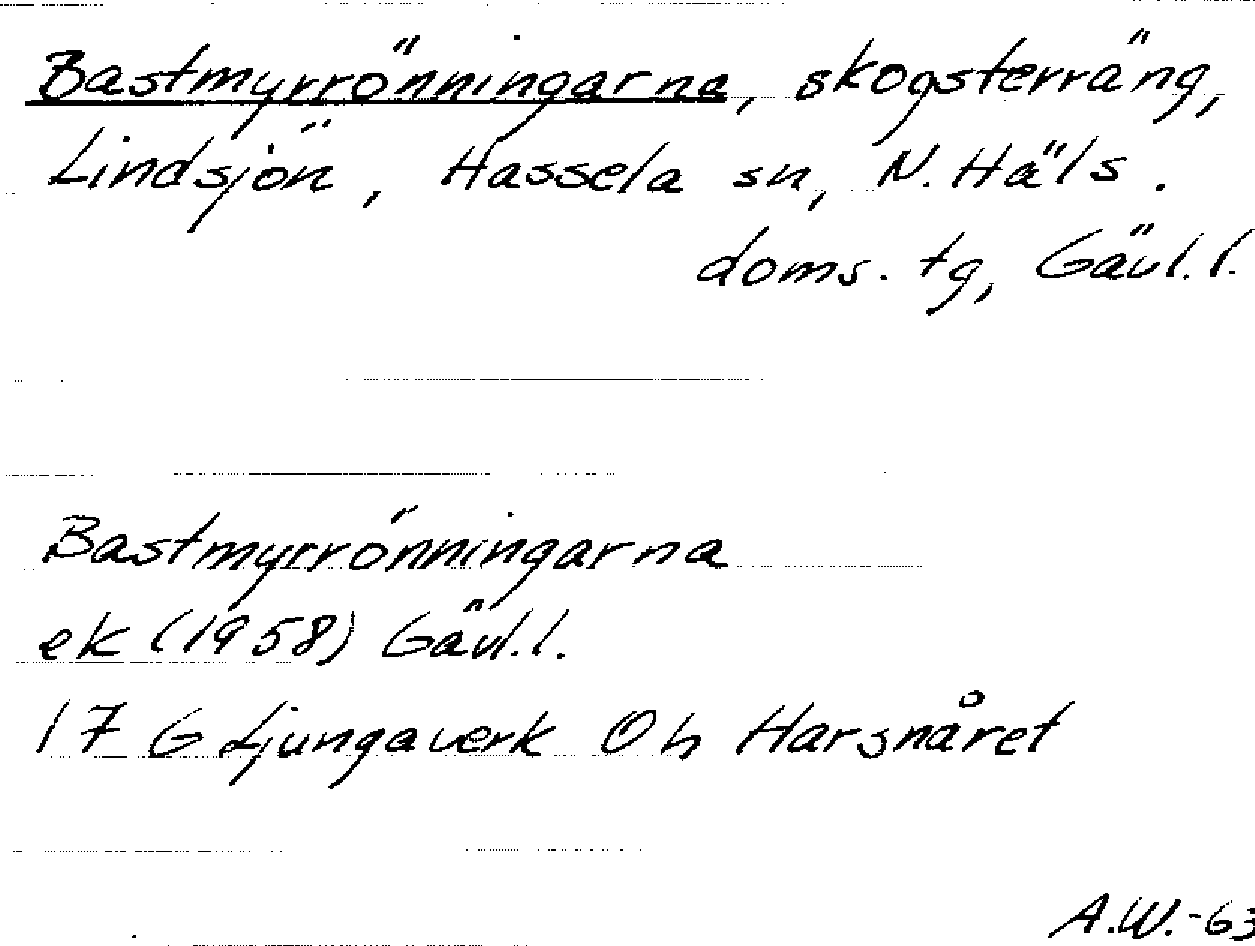 Bastmyrrönningarna, skogsterräng,
Lindsjön, Hassela sn, N. Häls.
doms. tg, Gävl. l.
Bastmyrrönningarna
ek (1958) Gävl. l.
17 G Ljungaverk 0 h Harsnåret
A.W.-63